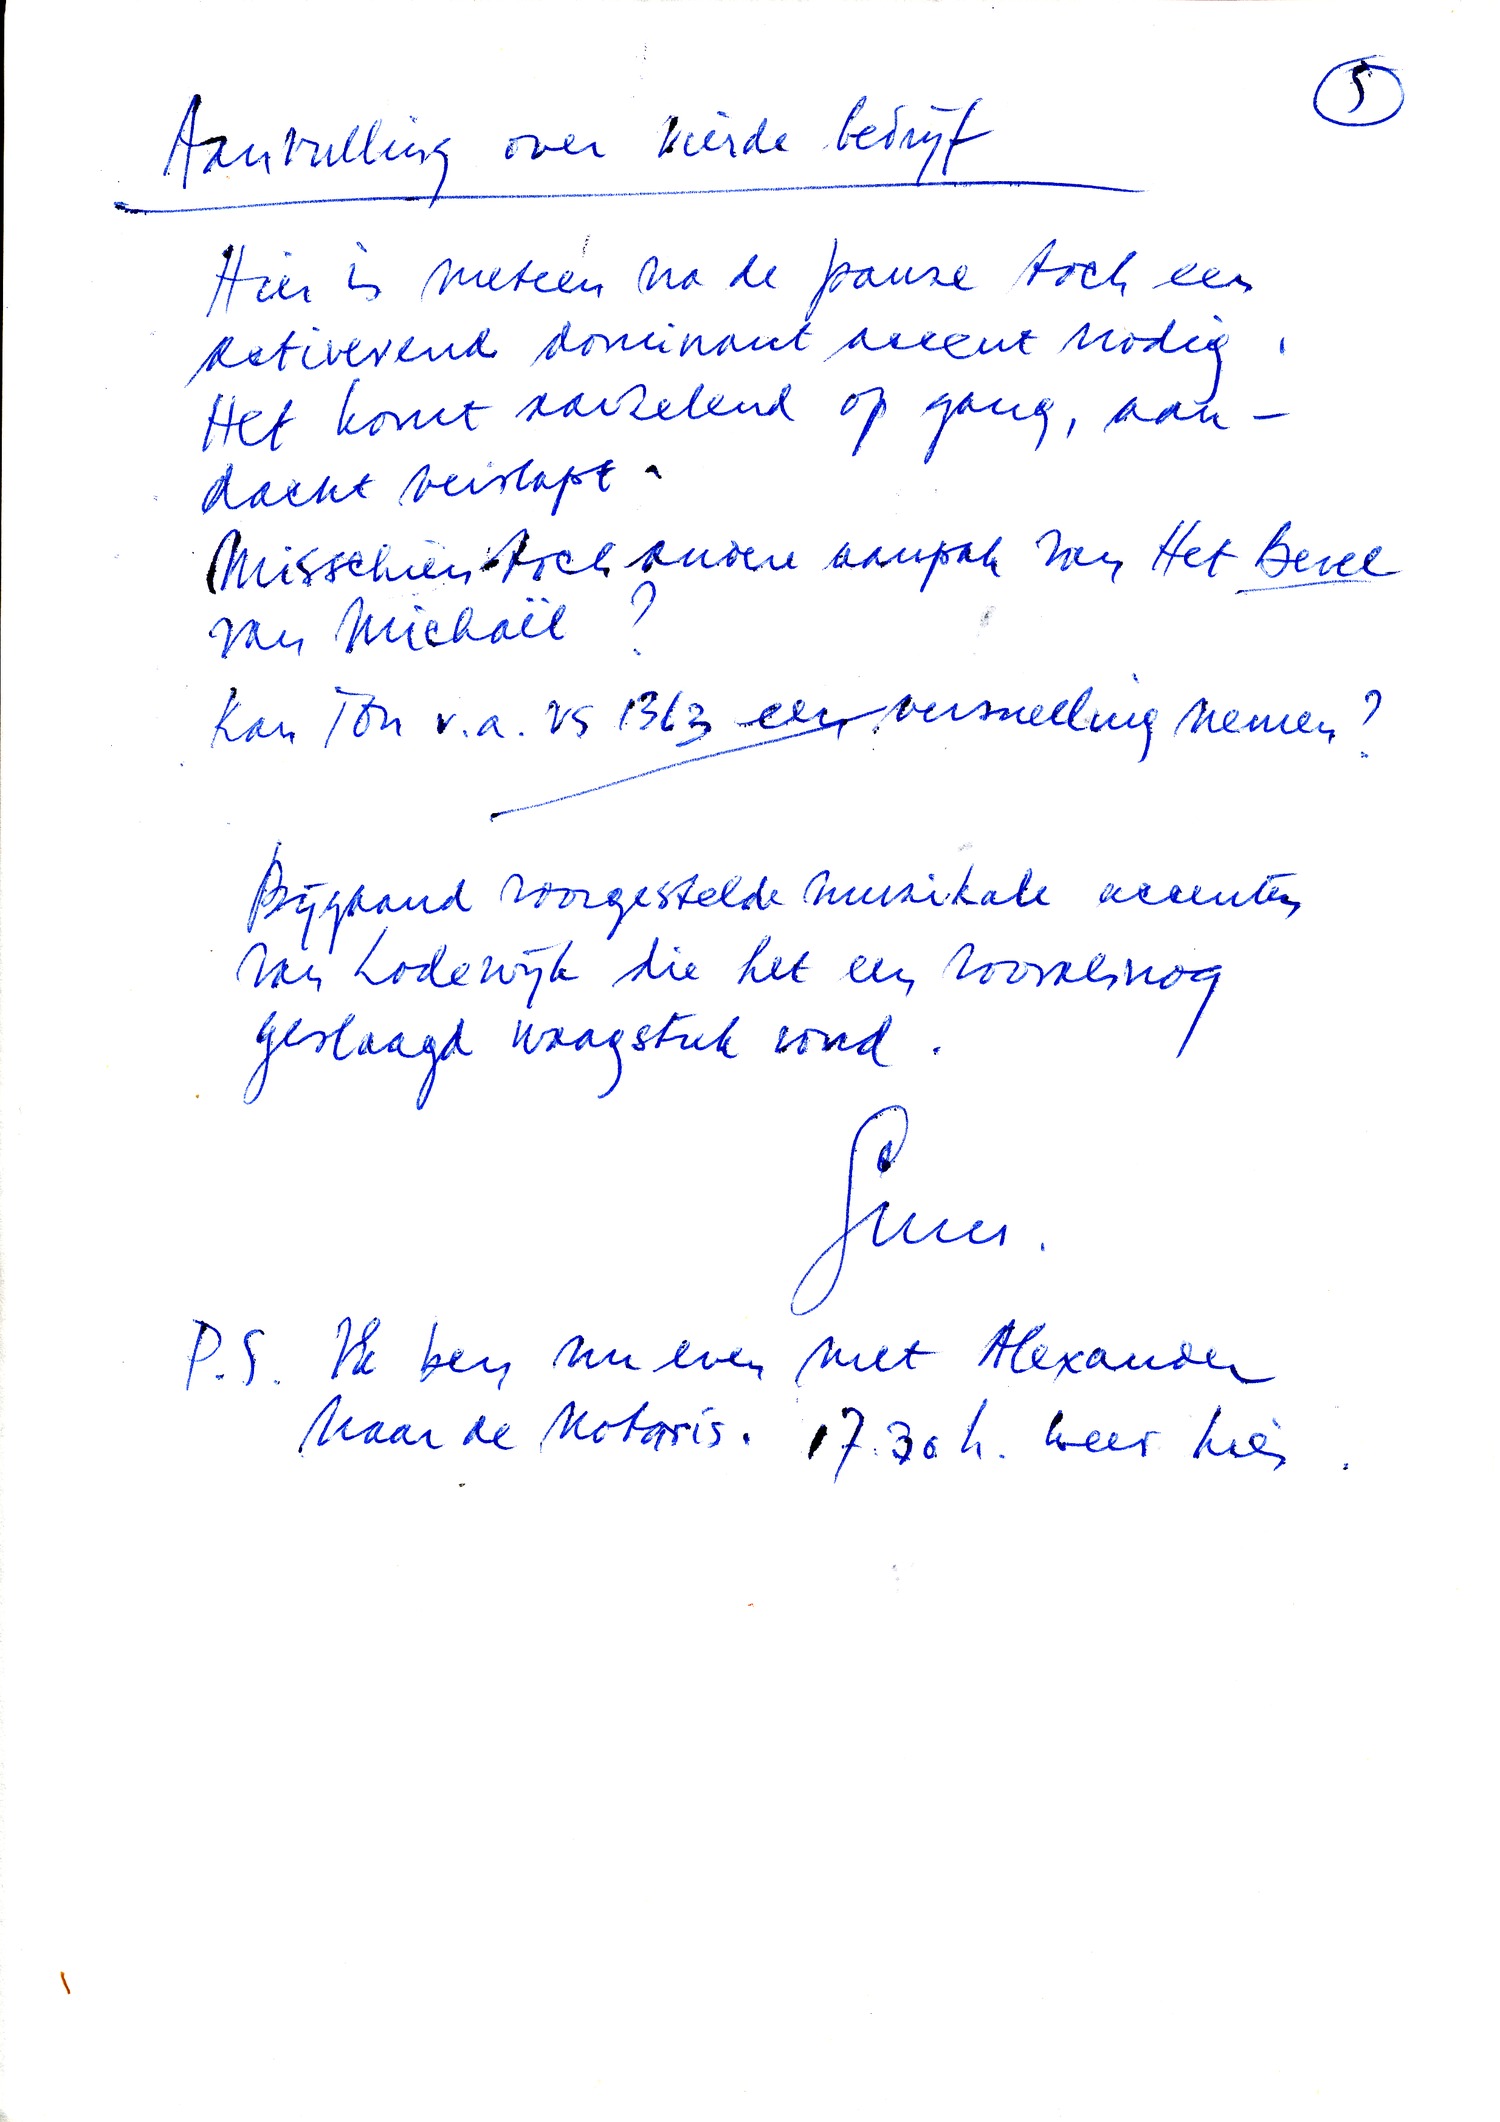 5
Aanvulling over vierde bedrijf
Hier is meteen na de pauze toch een
activerend dominant accent nodig.
Het komt aarzelend op gang, aan-
dacht verslapt.
Misschien toch andere aanpak van Het Bevel
van Michaël?
Kan Ton v.a. vs 1363 een versnelling nemen?
Bijgaand voorgestelde muzikale accenten
van Lodewijk die het een vooralsnog
geslaagd waagstuk vond.
P.S. Ik ben nu even met Alexander
naar de notaris. 17.30 h. weer hier.